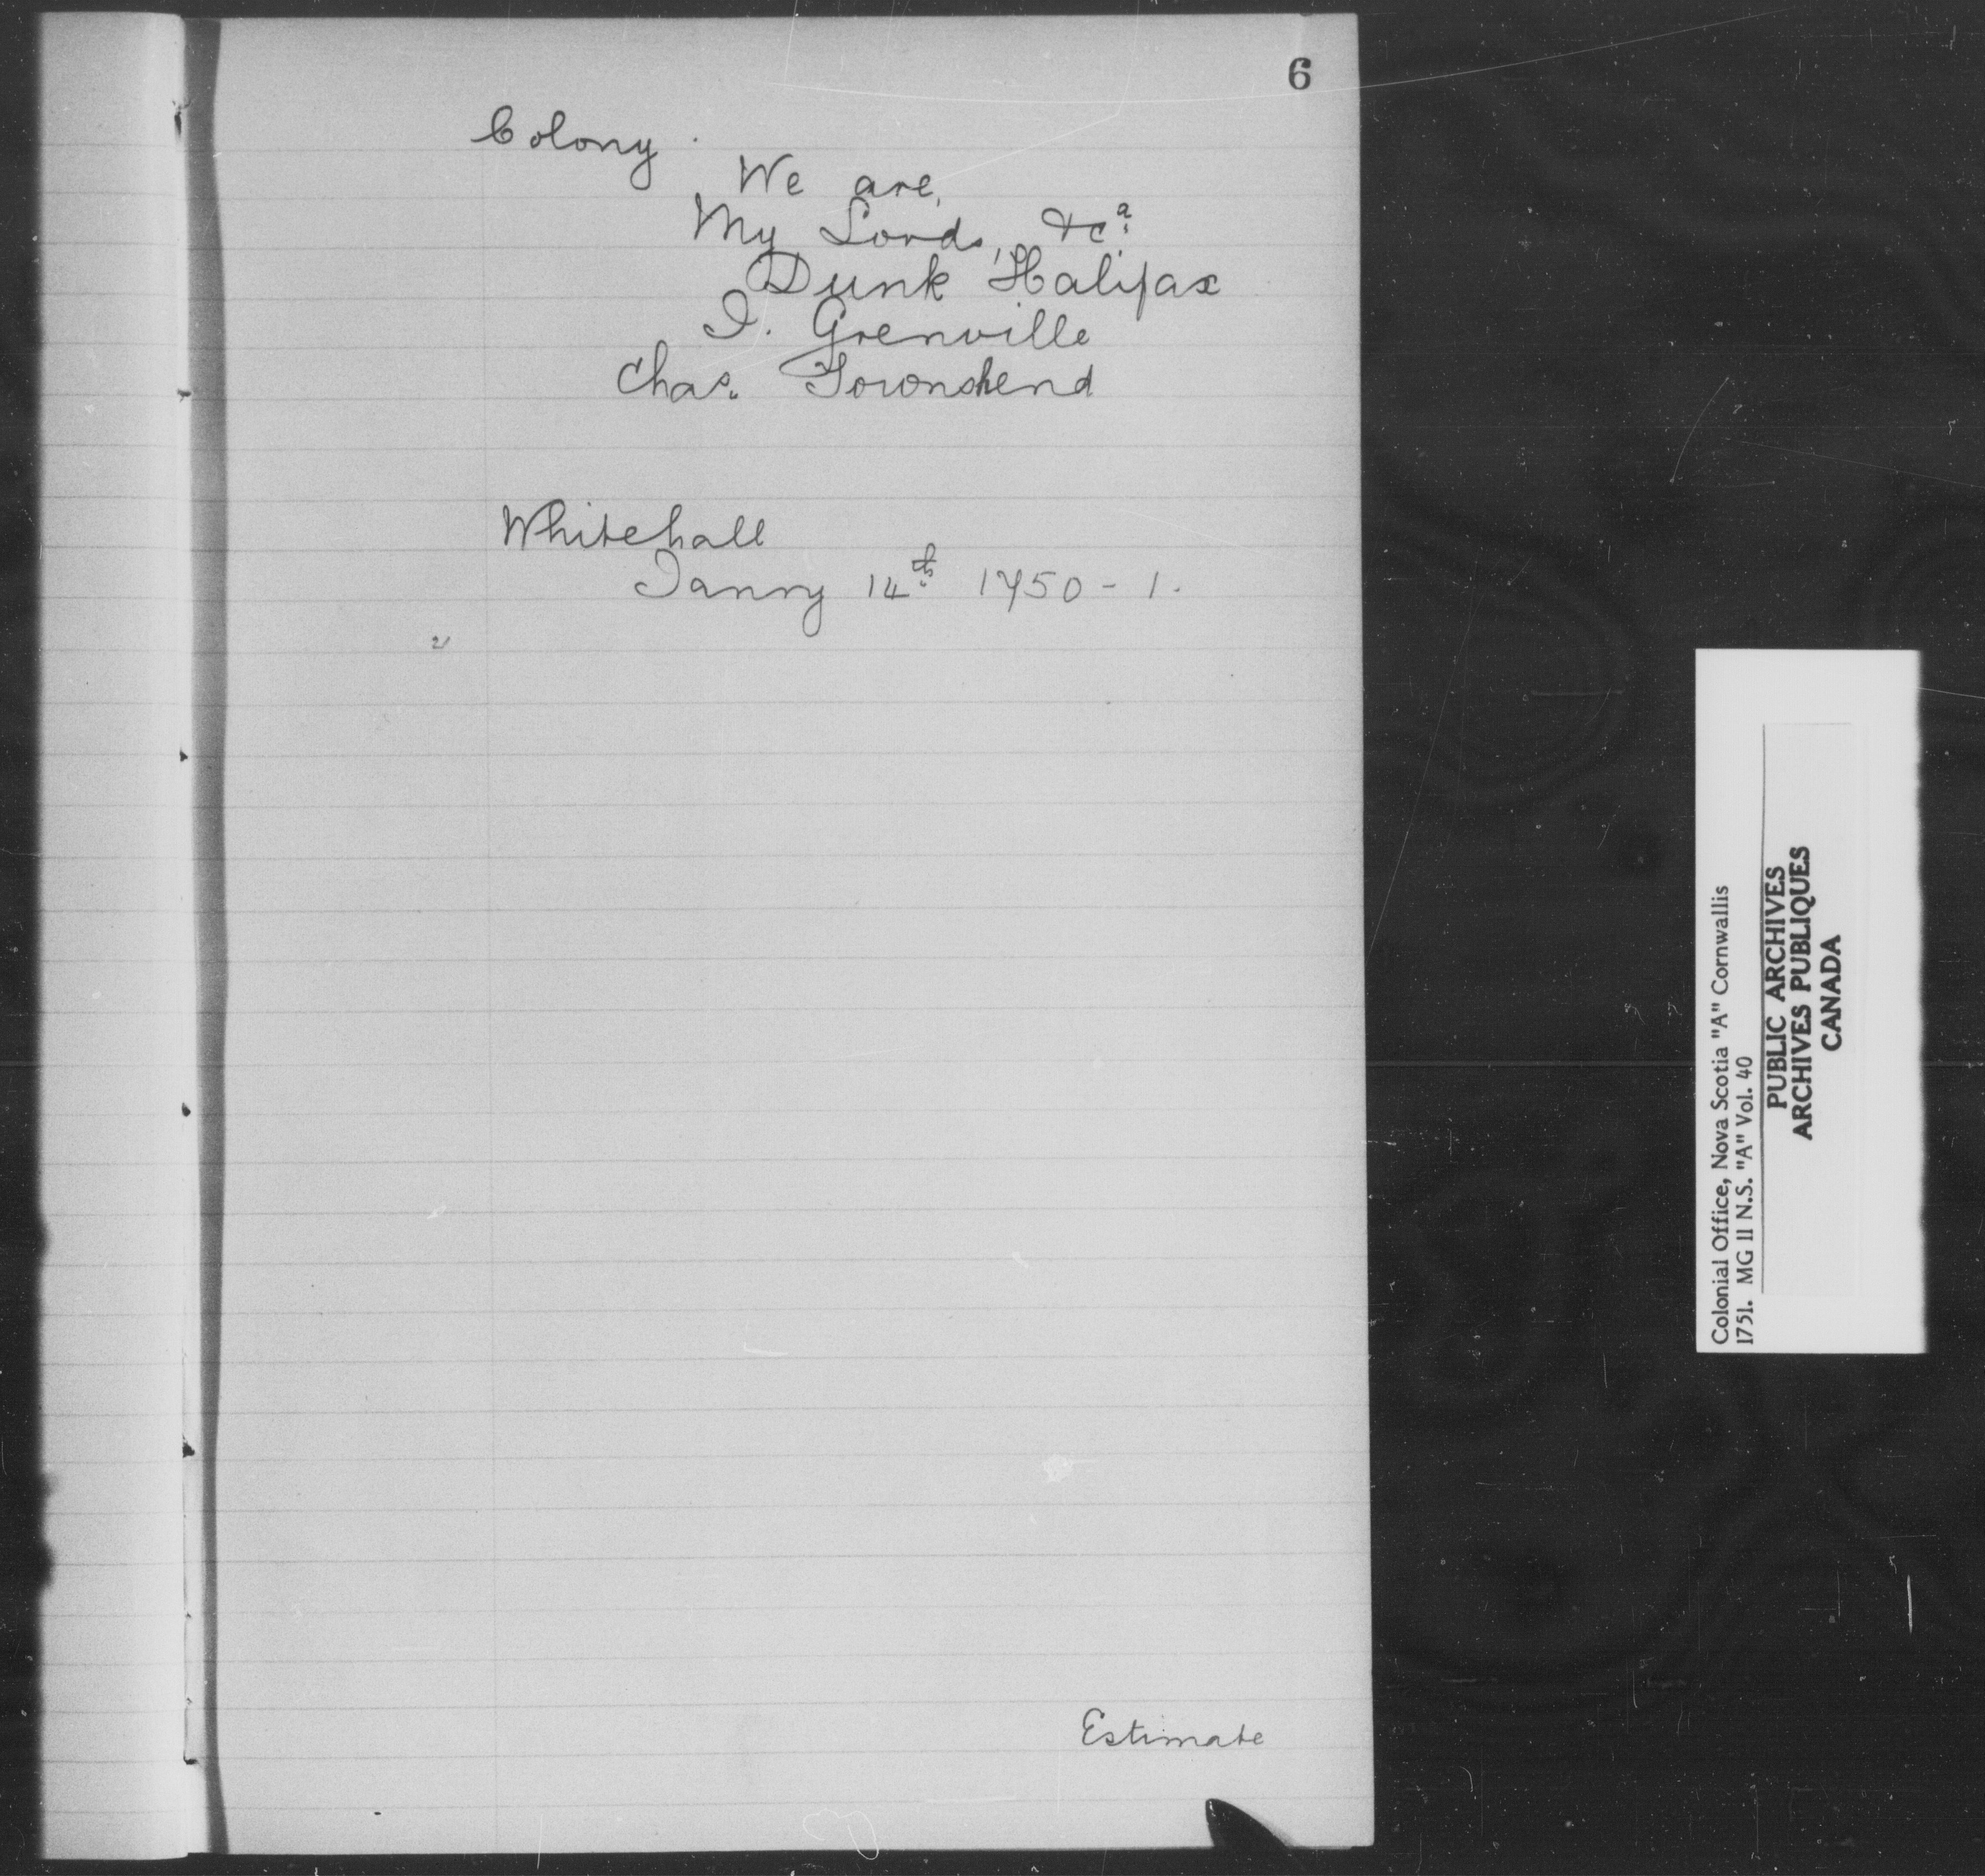 6
Colony.
We are,
My Lords, &cª.
Dunk Halifax
J. Grenville
Chas. Townshend
Whitehall
Janry 14th 1750-1.
Estimate
Colonial Office, Nova Scotia "A" Cornwallis
1751. MG 11 N.S. "A" Vol. 40
PUBLIC ARCHIVES
ARCHIVES PUBLIQUES
CANADA